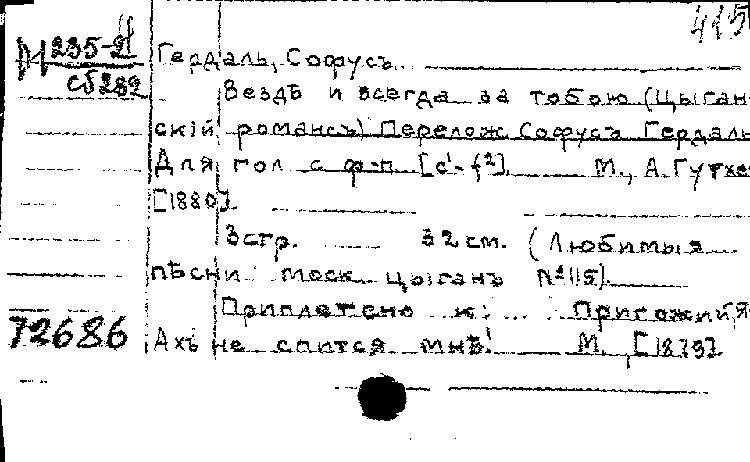 415
235-21
сб 282
Гердаль, Софусъ.
Вездѣ и всегда за тобою (Цыган-
скій романсъ) Перелож. Софусъ Гердаль
Для гол с ф-п. [c¹-f²]. М., А. Гутхе
[1880].
3 стр. 32 см. (Любимыя
пѣсни моск. цыганъ №115).
Приплетено к: Пригожий, Я
72686 Ахъ не спится мнѣ! М., [1879].